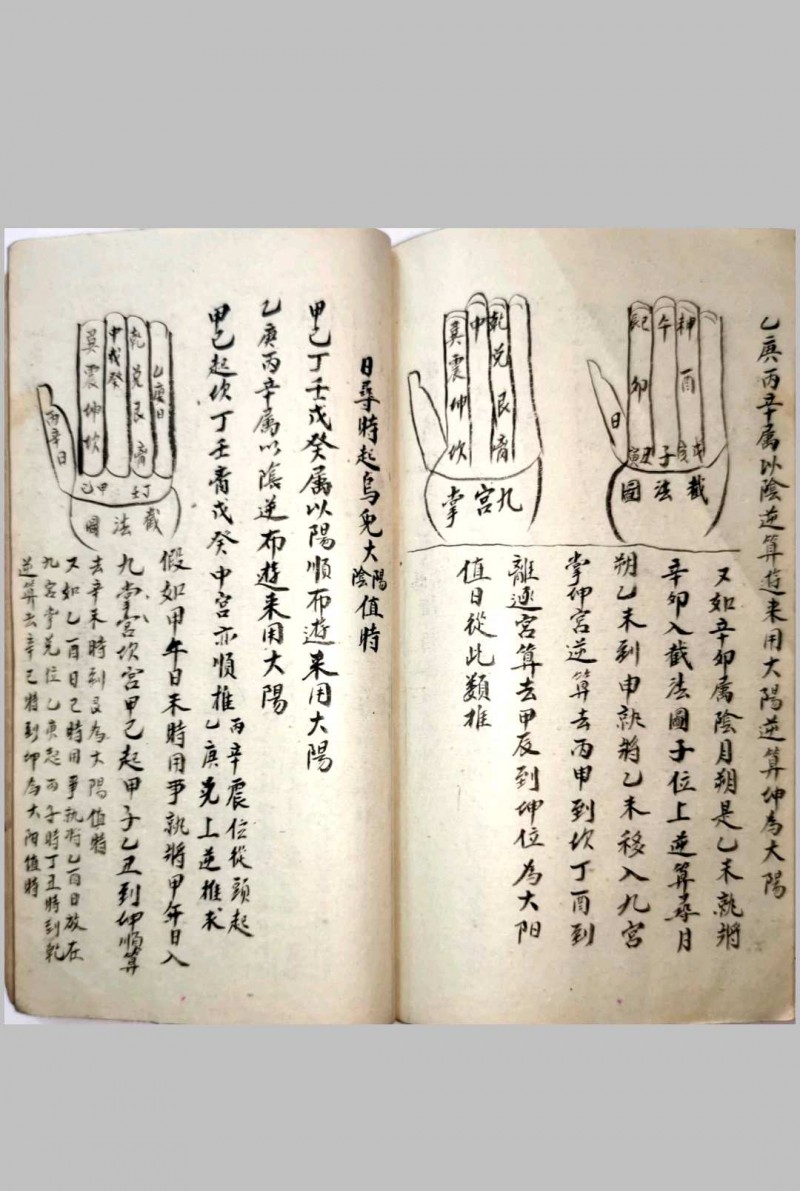 乙庚丙辛属以陰逆算遊来用大陽逆算坤為大陽
巳 午 申
卯 酉
寅 丑 子 亥 戌
日
截法圖
又如辛卯属陰月朔是乙未就將
辛卯入截法圖子位上逆算尋月
朔乙未到申就將乙未移入九宮
掌坤宮逆算去丙申到坎丁酉到
離逐宮算去甲辰到坤位為大阳
值日從此類推
巽震坤坎
中
乾兌艮离
九宮掌
日尋時起烏兔大陽陰值時
甲己丁壬戊癸属以陽順布遊来用大陽
乙庚丙辛属以陰逆布遊来用大陽
甲己起坎丁壬离戊癸中宮亦順推
丙辛震位從頭起
乙庚兌上逆推求
假如甲午日未時用事就將甲午日入
九掌宮坎宮甲己起甲子乙丑到坤順算
去辛未時到艮為大陽值時
又如乙酉日巳時用事就將乙酉日放在
九宮掌兌位乙庚起丙子時丁丑時到乾
逆算去辛巳時到坤為大阳值時
巽震坤坎
中戊癸
乾兌艮离
乙庚日
丙辛日
甲己
丁壬
截法圖